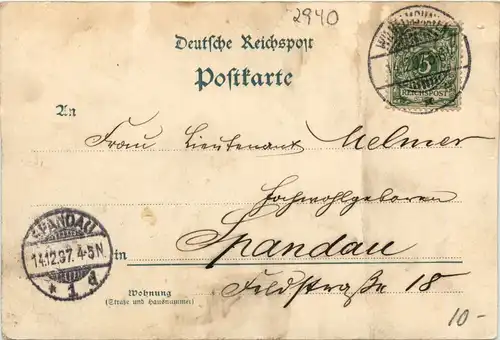 2940
Deutsche Reichspost
Postkarte
5
REICHSPOST
An
Frau Lieutenant Melmer
Hochwohlgeboren
SPANDAU
14.12.97. 4-5N.
* 1 d
in Spandau
Feldstraße 18
Wohnung
(Straße und Hausnummer)
10-